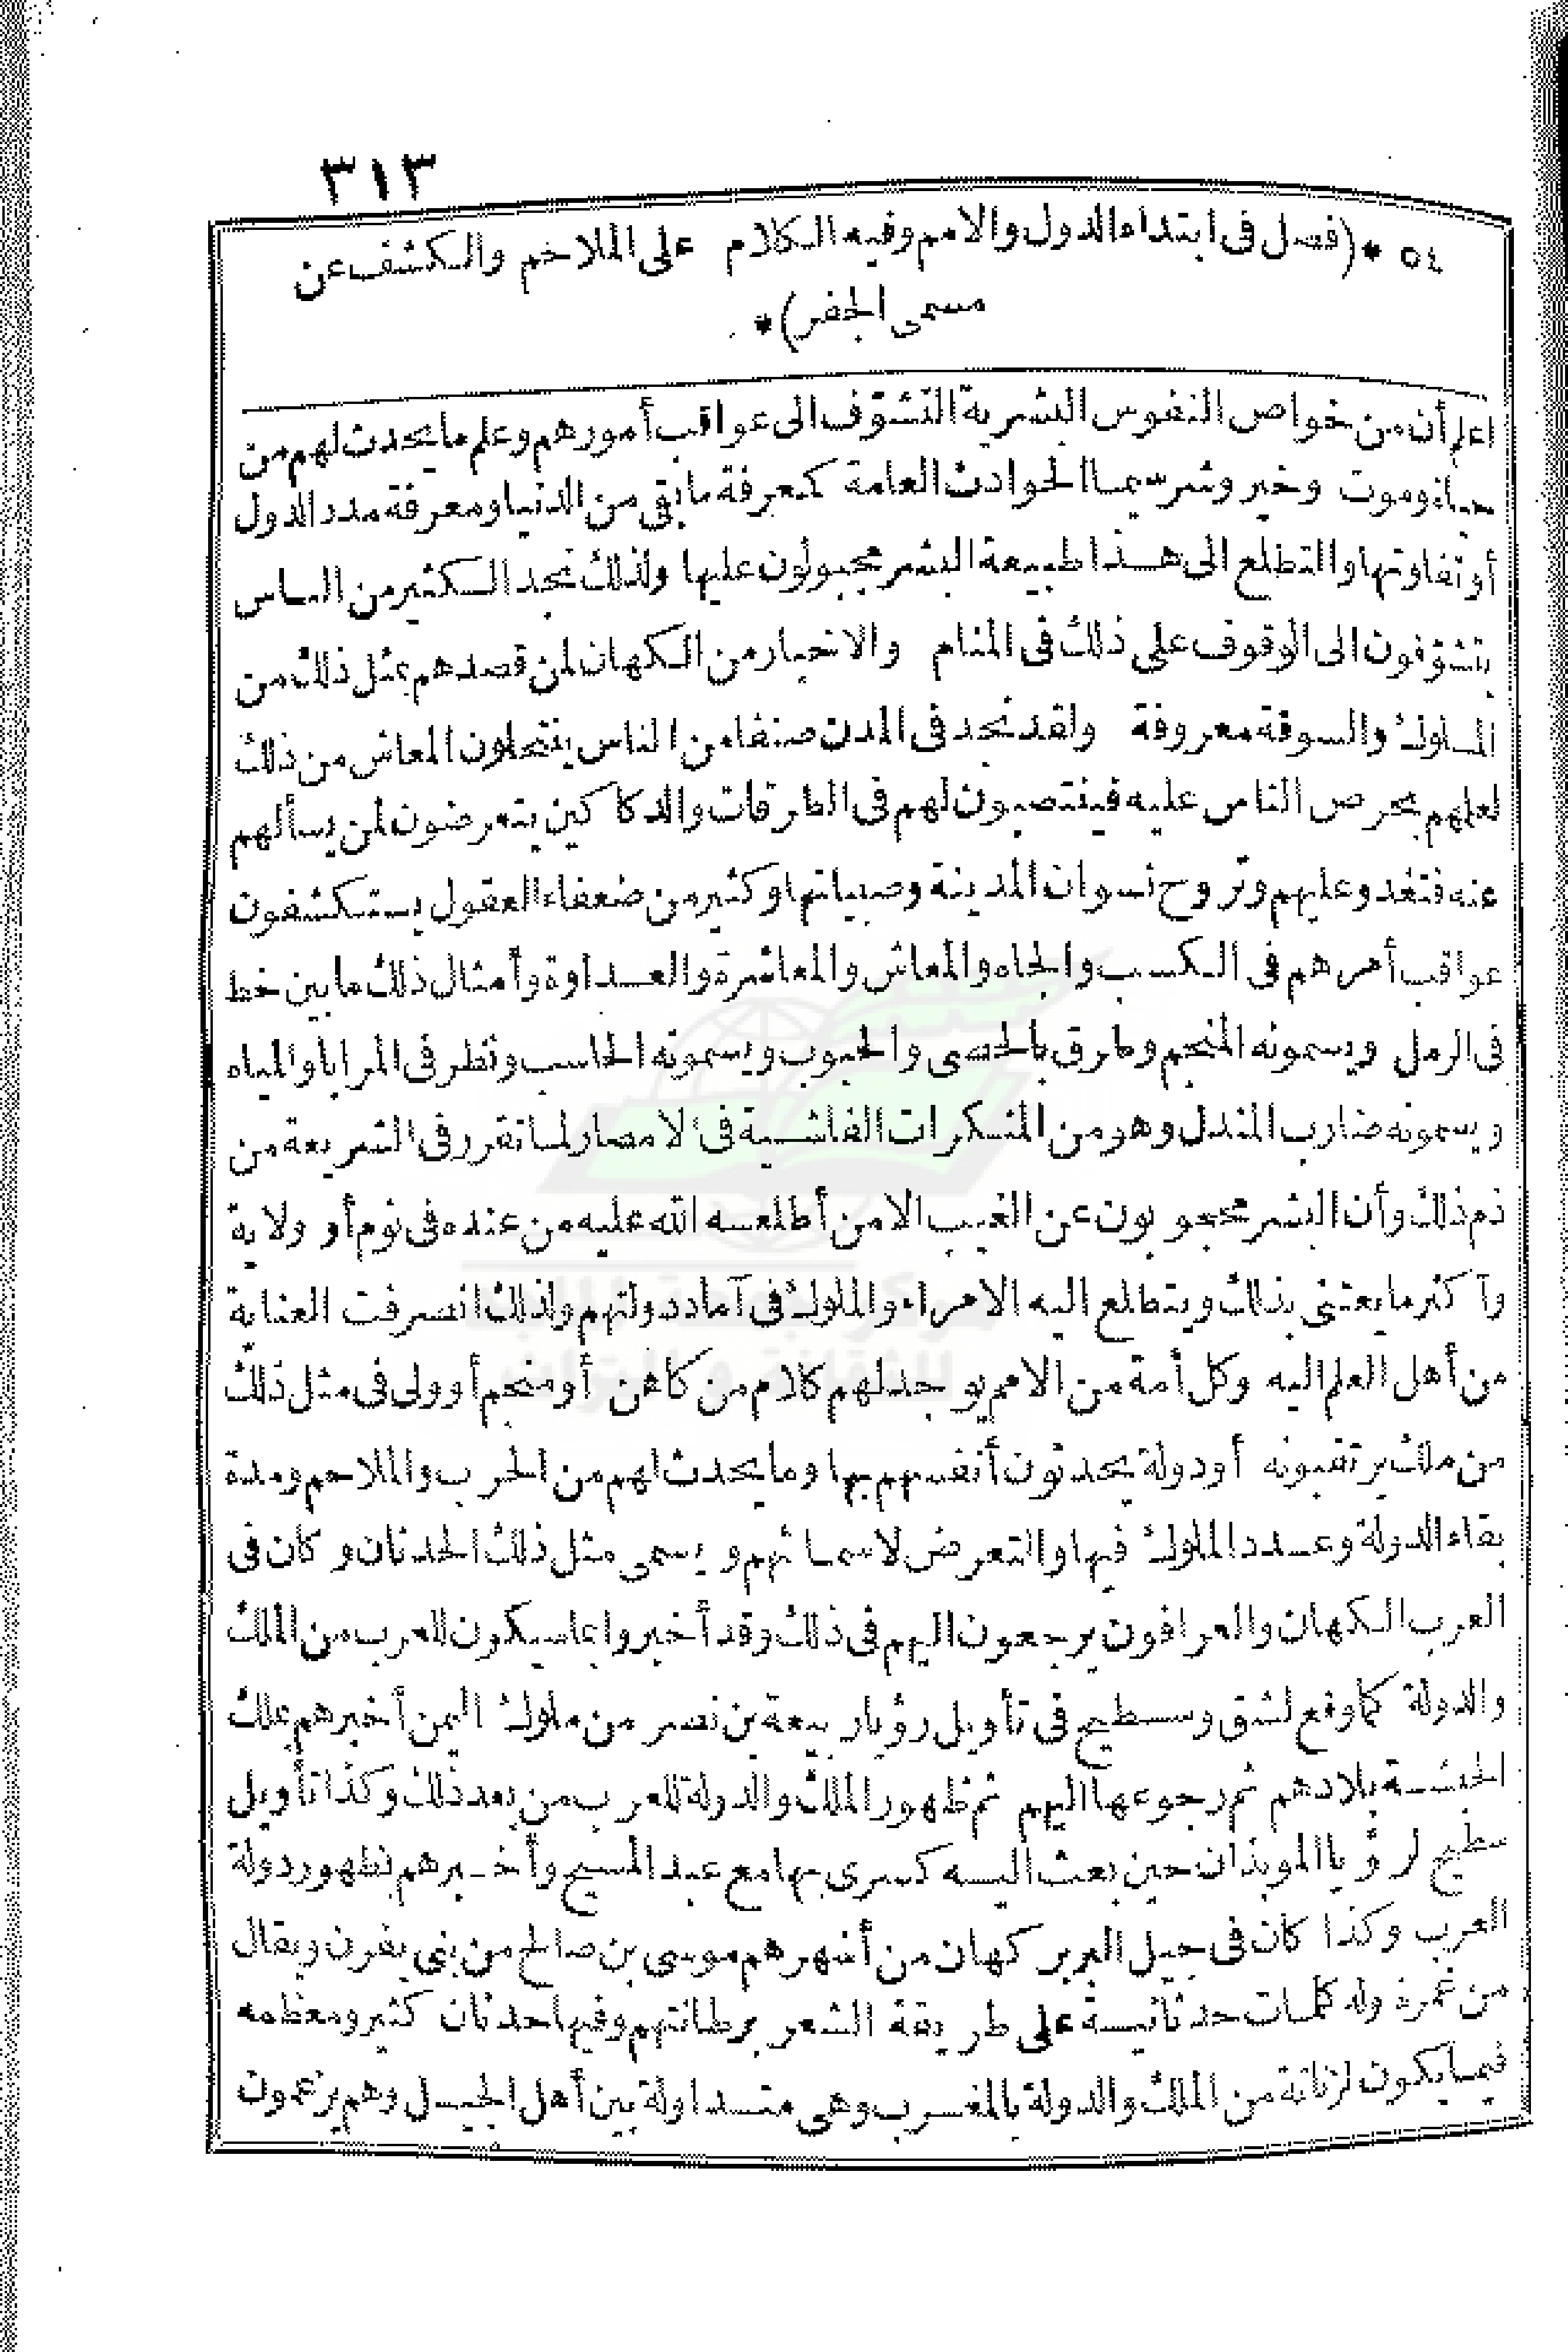 ٣١٣
٥٤ *(فصل فى ابتداء الدول والامم وفيه الكلام على الملاحم والكشف عن
مسمى الجفر)*
اعلم أن من خواص النفوس البشرية التشوّف الى عواقب أمورهم وعلم ما يحدث لهم من
حياة وموت وخير وشر سيما الحوادث العامة كمعرفة ما بقى من الدنيا ومعرفة مدد الدول
أو تفاوتها والتطلع الى هذا طبيعة البشر مجبولون عليها ولذلك نجد الكثير من الناس
يتشوّفون الى الوقوف على ذلك فى المنام والاخبار من الكهان لمن قصدهم بمثل ذلك من
الملوك والسوقة معروفة ولقد نجد فى المدن صنفا من الناس ينتحلون المعاش من ذلك
لعلمهم بحرص الناس عليه فينتصبون لهم فى الطرقات والدكاكين يتعرضون لمن يسألهم
عنه فتغدو عليهم وتروح نسوان المدينة وصبيانها وكثير من ضعفاء العقول يستكشفون
عواقب أمرهم فى الكسب والجاه والمعاش والمعاشرة والعداوة وأمثال ذلك ما بين خط
فى الرمل ويسمونه المنجم وطرق بالحصى والحبوب ويسمونه الحاسب ونظر فى المرايا والمياه
ويسمونه ضارب المندل وهو من المنكرات الفاشية فى الامصار لما تقرر فى الشريعة من
ذم ذلك وأن البشر محجوبون عن الغيب الا من أطلعه الله عليه من عنده فى نوم أو ولاية
وأكثر ما يعتنى بذلك ويتطلع اليه الامراء والملوك فى آماد دولتهم ولذلك انصرفت العناية
من أهل العلم اليه وكل أمة من الامم يوجد لهم كلام من كاهن أو منجم أو ولى فى مثل ذلك
من ملك يرتقبونه أو دولة يحدثون أنفسهم بها وما يحدث لهم من الحرب والملاحم ومدة
بقاء الدولة وعدد الملوك فيها والتعرض لاسمائهم ويسمى مثل ذلك الحدثان وكان فى
العرب الكهان والعرافون يرجعون اليهم فى ذلك وقد أخبروا بما سيكون للعرب من الملك
والدولة كما وقع لشق وسطيح فى تأويل رؤيا ربيعة بن نصر من ملوك اليمن أخبرهم بملك
الحبشة بلادهم ثم رجوعها اليهم ثم ظهور الملك والدولة للعرب من بعد ذلك وكذا تأويل
سطيح لرؤيا الموبذان حين بعث اليه كسرى بها مع عبد المسيح وأخبرهم بظهور دولة
العرب وكذا كان فى جيل البربر كهان من أشهرهم موسى بن صالح من بنى يفرن ويقال
من غمرة وله كلمات حدثانية على طريقة الشعر برطانتهم وفيها حدثان كثير ومعظمه
فيما يكون لزناتة من الملك والدولة بالمغرب وهى متداولة بين أهل الجيل وهم يزعمون